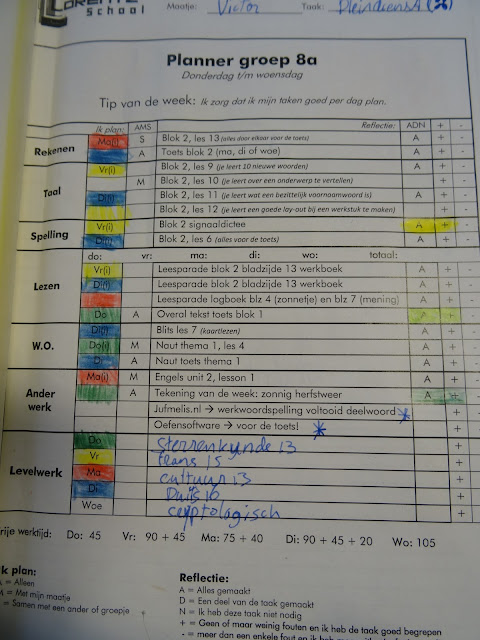 LORENTZ
School
Maatje: Victor Taak: PleindienstA
Planner groep 8a
Donderdag t/m woensdag
Tip van de week: Ik zorg dat ik mijn taken goed per dag plan.
Ik plan: AMS Reflectie: ADN + -
Rekenen Ma(i) S Blok 2, les 13 (alles door elkaar voor de toets) A + -
A Toets blok 2 (ma, di of woe) A + -
Taal Vr(i) Blok 2, les 9 (je leert 10 nieuwe woorden) A + -
M Blok 2, les 10 (je leert over een onderwerp te vertellen) + -
Di(i) Blok 2, les 11 (je leert wat een bezittelijk voornaamwoord is) A + -
Blok 2, les 12 (je leert een goede lay-out bij een werkstuk te maken) + -
Spelling Vr(i) Blok 2 signaaldictee A + -
Di(i) Blok 2, les 6 (alles voor de toets) A + -
do: vr: ma: di: wo: totaal:
Lezen Vr(i) Leesparade blok 2 bladzijde 13 werkboek A +
Di(i) Leesparade blok 2 bladzijde 13 werkboek A +
Leesparade logboek blz 4 (zonnetje) en blz 7 (mening) +
Do A Overal tekst toets blok 1 A +
W.O. Di(i) Blits les 7 (kaartlezen) A +
Do(i) M Naut thema 1, les 4 A +
Di A Naut toets thema 1 A +
Ander werk Ma(i) M Engels unit 2, lesson 1 A +
A Tekening van de week: zonnig herfstweer A +
Jufmelis.nl → werkwoordspelling voltooid deelwoord * +
Oefensoftware → voor de toets! * +
Levelwerk Do sterrenkunde 13 +
Vr 15 +
Ma cultuur 13 +
Di Duits 16 +
Woe cryptologisch +
rije werktijd: Do: 45 Vr: 90 + 45 Ma: 75 + 40 Di: 90 + 45 + 20 Wo: 105
k plan:
= Alleen
= Met mijn maatje
= Samen met een ander of groepje
Reflectie:
A = Alles gemaakt
D = Een deel van de taak gemaakt
N = Ik heb deze taak niet nodig
+ = Geen of maar weinig fouten en ik heb de taak goed begrepen
- = meer dan een enkele fout en ik heb